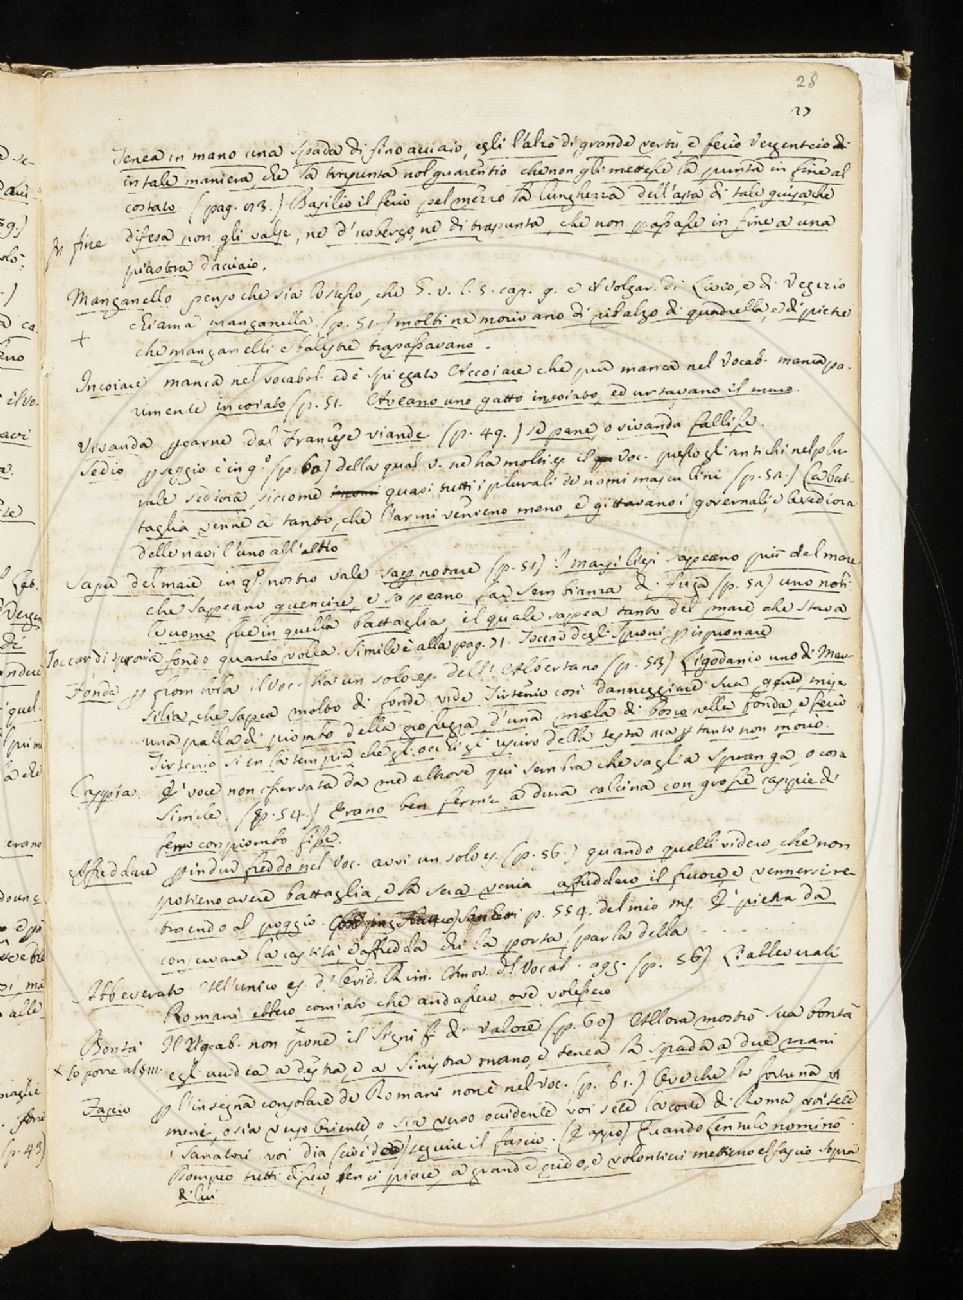 28
tenea in mano una spada di fino acciaio, egli l'alzò di grande vertù, e ferio Vergenteio di
in tale maniera, che la trapunta nol guarentio che non gli mettesse la punta in fine al
costato (pag. 43.) Basilio il ferio pel mezzo la lunghezza dell'asta di tale guisa che
difesa non gli valse, ne d'usbergo, ne di trapunta, che non passasse in fine a una
In fine
piastra d'acciaio.
Manganello penso che sia lo stesso, che G. V. l. 5. cap. 9. e il Volgar. di Livio, e di Vegezio
chiama manganella (p. 51.) molti ne morivano di rifalzo di quadrella, e di pietre
+
che manganelli e balestre trapassavano.
Incoiare manca nel vocabol. ed è spiegato Accoiare che pur manca nel Vocab. manca pa-
rimente incoiato (p. 51. Aveano uno gatto incoiato, ed urtavano il muro.
Vivanda p carne dal Francese viande (p. 49.) se pane, o vivanda fallisse.
Sedio p seggio è in q.o (p. 60) della qual v. ne ha molti es. il Voc. questo gli antichi nel plu-
rale sediora, siccome quasi tutti i plurali de nomi masculini (p. 52.) La bat-
taglia venne a tanto, che l'armi venneno meno, e gittavano i governali, e le sediora
delle navi l'uno all'altro
Sapere del mare in q.o nostro vale saper notare (p. 51) I Marsiliesi sapeano più del mare
che sappeano guencire, e sapeano far sembianza di fuga (p. 52) uno notò
Lo uomo fue in quella battaglia, il quale sapea tanto del mare che stava
fondo quanto volla. Simile è alla pag. 71. Toccar degli Sproni p spronare
Toccar di sproni
Fonda p frombola il Voc. ha un solo es. dell'Albertano (p. 53) Ligodanio uno di Mar-
silia, che sapea molto di fonde vide Tirtenio così danneggiare sua gente misa
una palla di piombo della grossezza d'una mela di bosco nella fonda, e ferio
Tirtenio sì en la tempia che gli occhi gli usciro della testa ma p tanto non morio.
Cappia. È voce non osservata da me altrove qui sembra che vaglia spranga, o cosa
simile. (p. 54.) Erano ben ferme a dura calcina con grosse cappie di
ferro con piombo fisse.
Affreddare p indur freddo nel Voc. avvi un solo es. (p. 56.) quando quelli videro che non
potieno avere battaglia, e la sera venia affreddaro il furore e vennersi re-
traendo al poggio. p. 554. del mio ms. È pietra da
conservare la castità, e affredda chi la porta, parla della . . . . .
Abbeverato All'unico es. di Cerid. Rim. Amor. del Vocab. agg. (p. 56) Li abbeverati
Romani ebbero comiato che andassero ove volessero
Bontà Il Vocab. non pone il signif. di valore (p. 60) Allora mostrò sua bontà
egli uccidea a destra, e a sinistra mano, e tenea la spada a due mani
x lo pone al §III.
Fascio p l'insegna consolare de Romani non è nel Voc. (p. 61.) Ove che la fortuna vi
meni, o sia verso Oriente o sia verso occidente voi sete la corte di Roma, voi sete
i sanatori voi dia seguire il fascio. (E appo) Quando Lentulo nominò
Pompeo tutti dissero, ben ci piace, a grande grido, e volontieri mettieno el fascio sopra
di lui